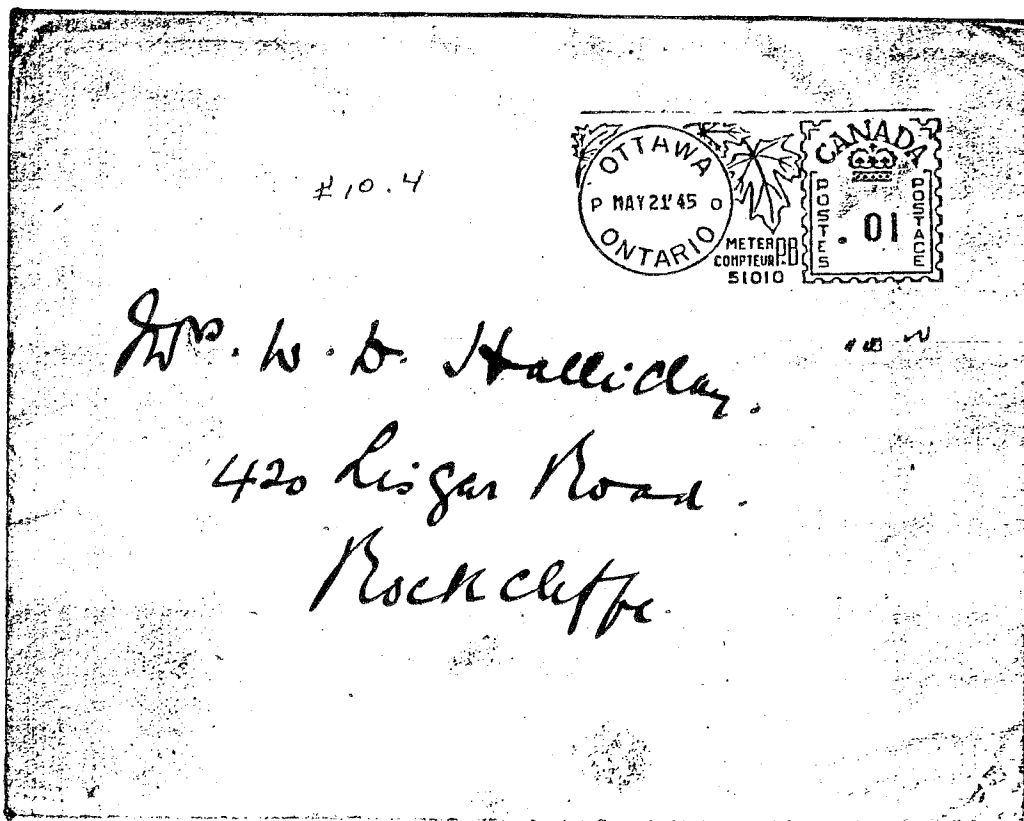 #10.4
OTTAWA
P MAY 21' 45 O
ONTARIO
METER PB
COMPTEUR
51010
CANADA
POSTES
.01
POSTAGE
Mrs. W. D. Halliday.
420 Lisgar Road.
Rockcliffe.